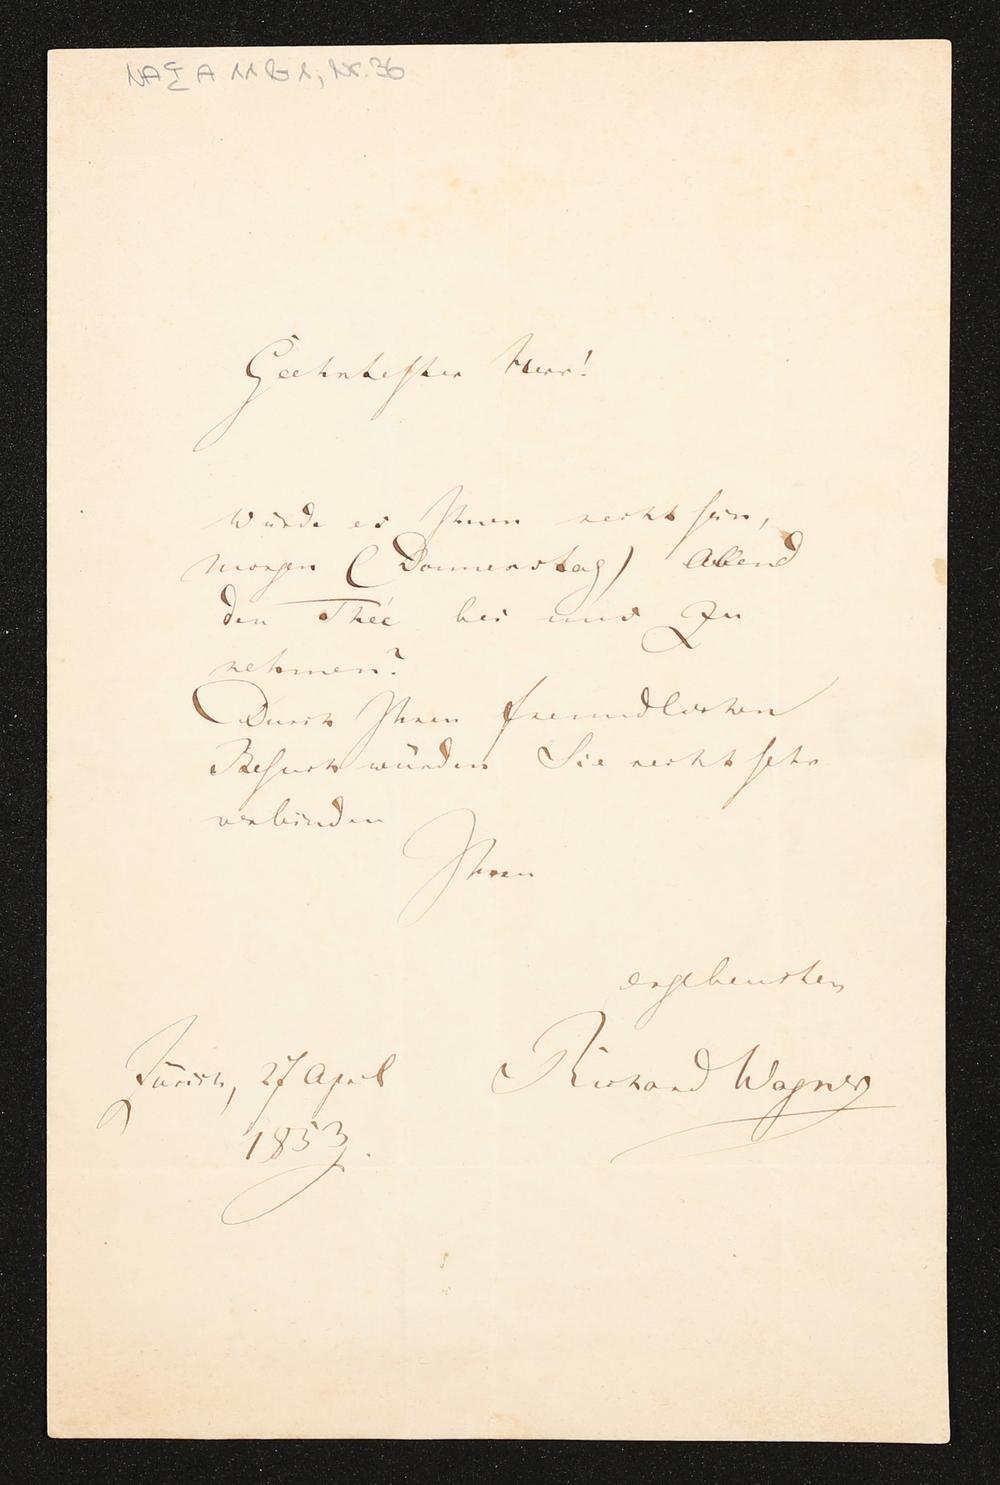 Geehrtester Herr!
Würde es Ihnen recht sein,
morgen (Donnerstag) Abend
den Thée bei uns zu
nehmen?
Durch Ihren freundlichen
Besuch würden Sie recht sehr
verbinden
Ihren
ergebensten
Richard Wagner
Zürich, 27 April
1853.